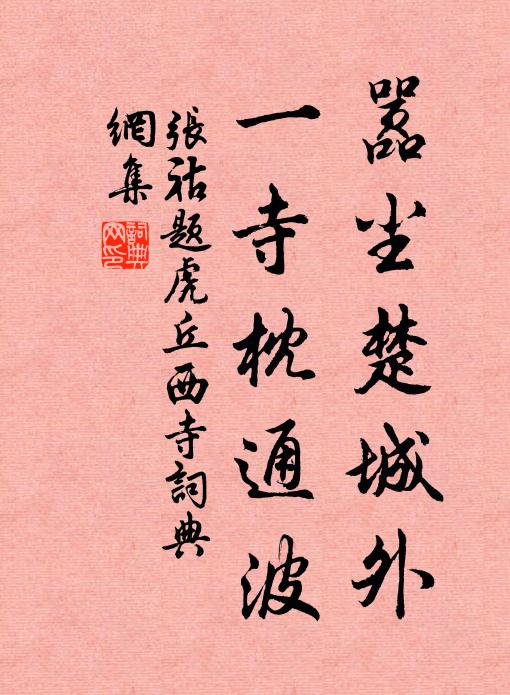 嚣尘楚城外
一寺枕通波
張祜题虎丘西寺詞典
網集
詞典
网印